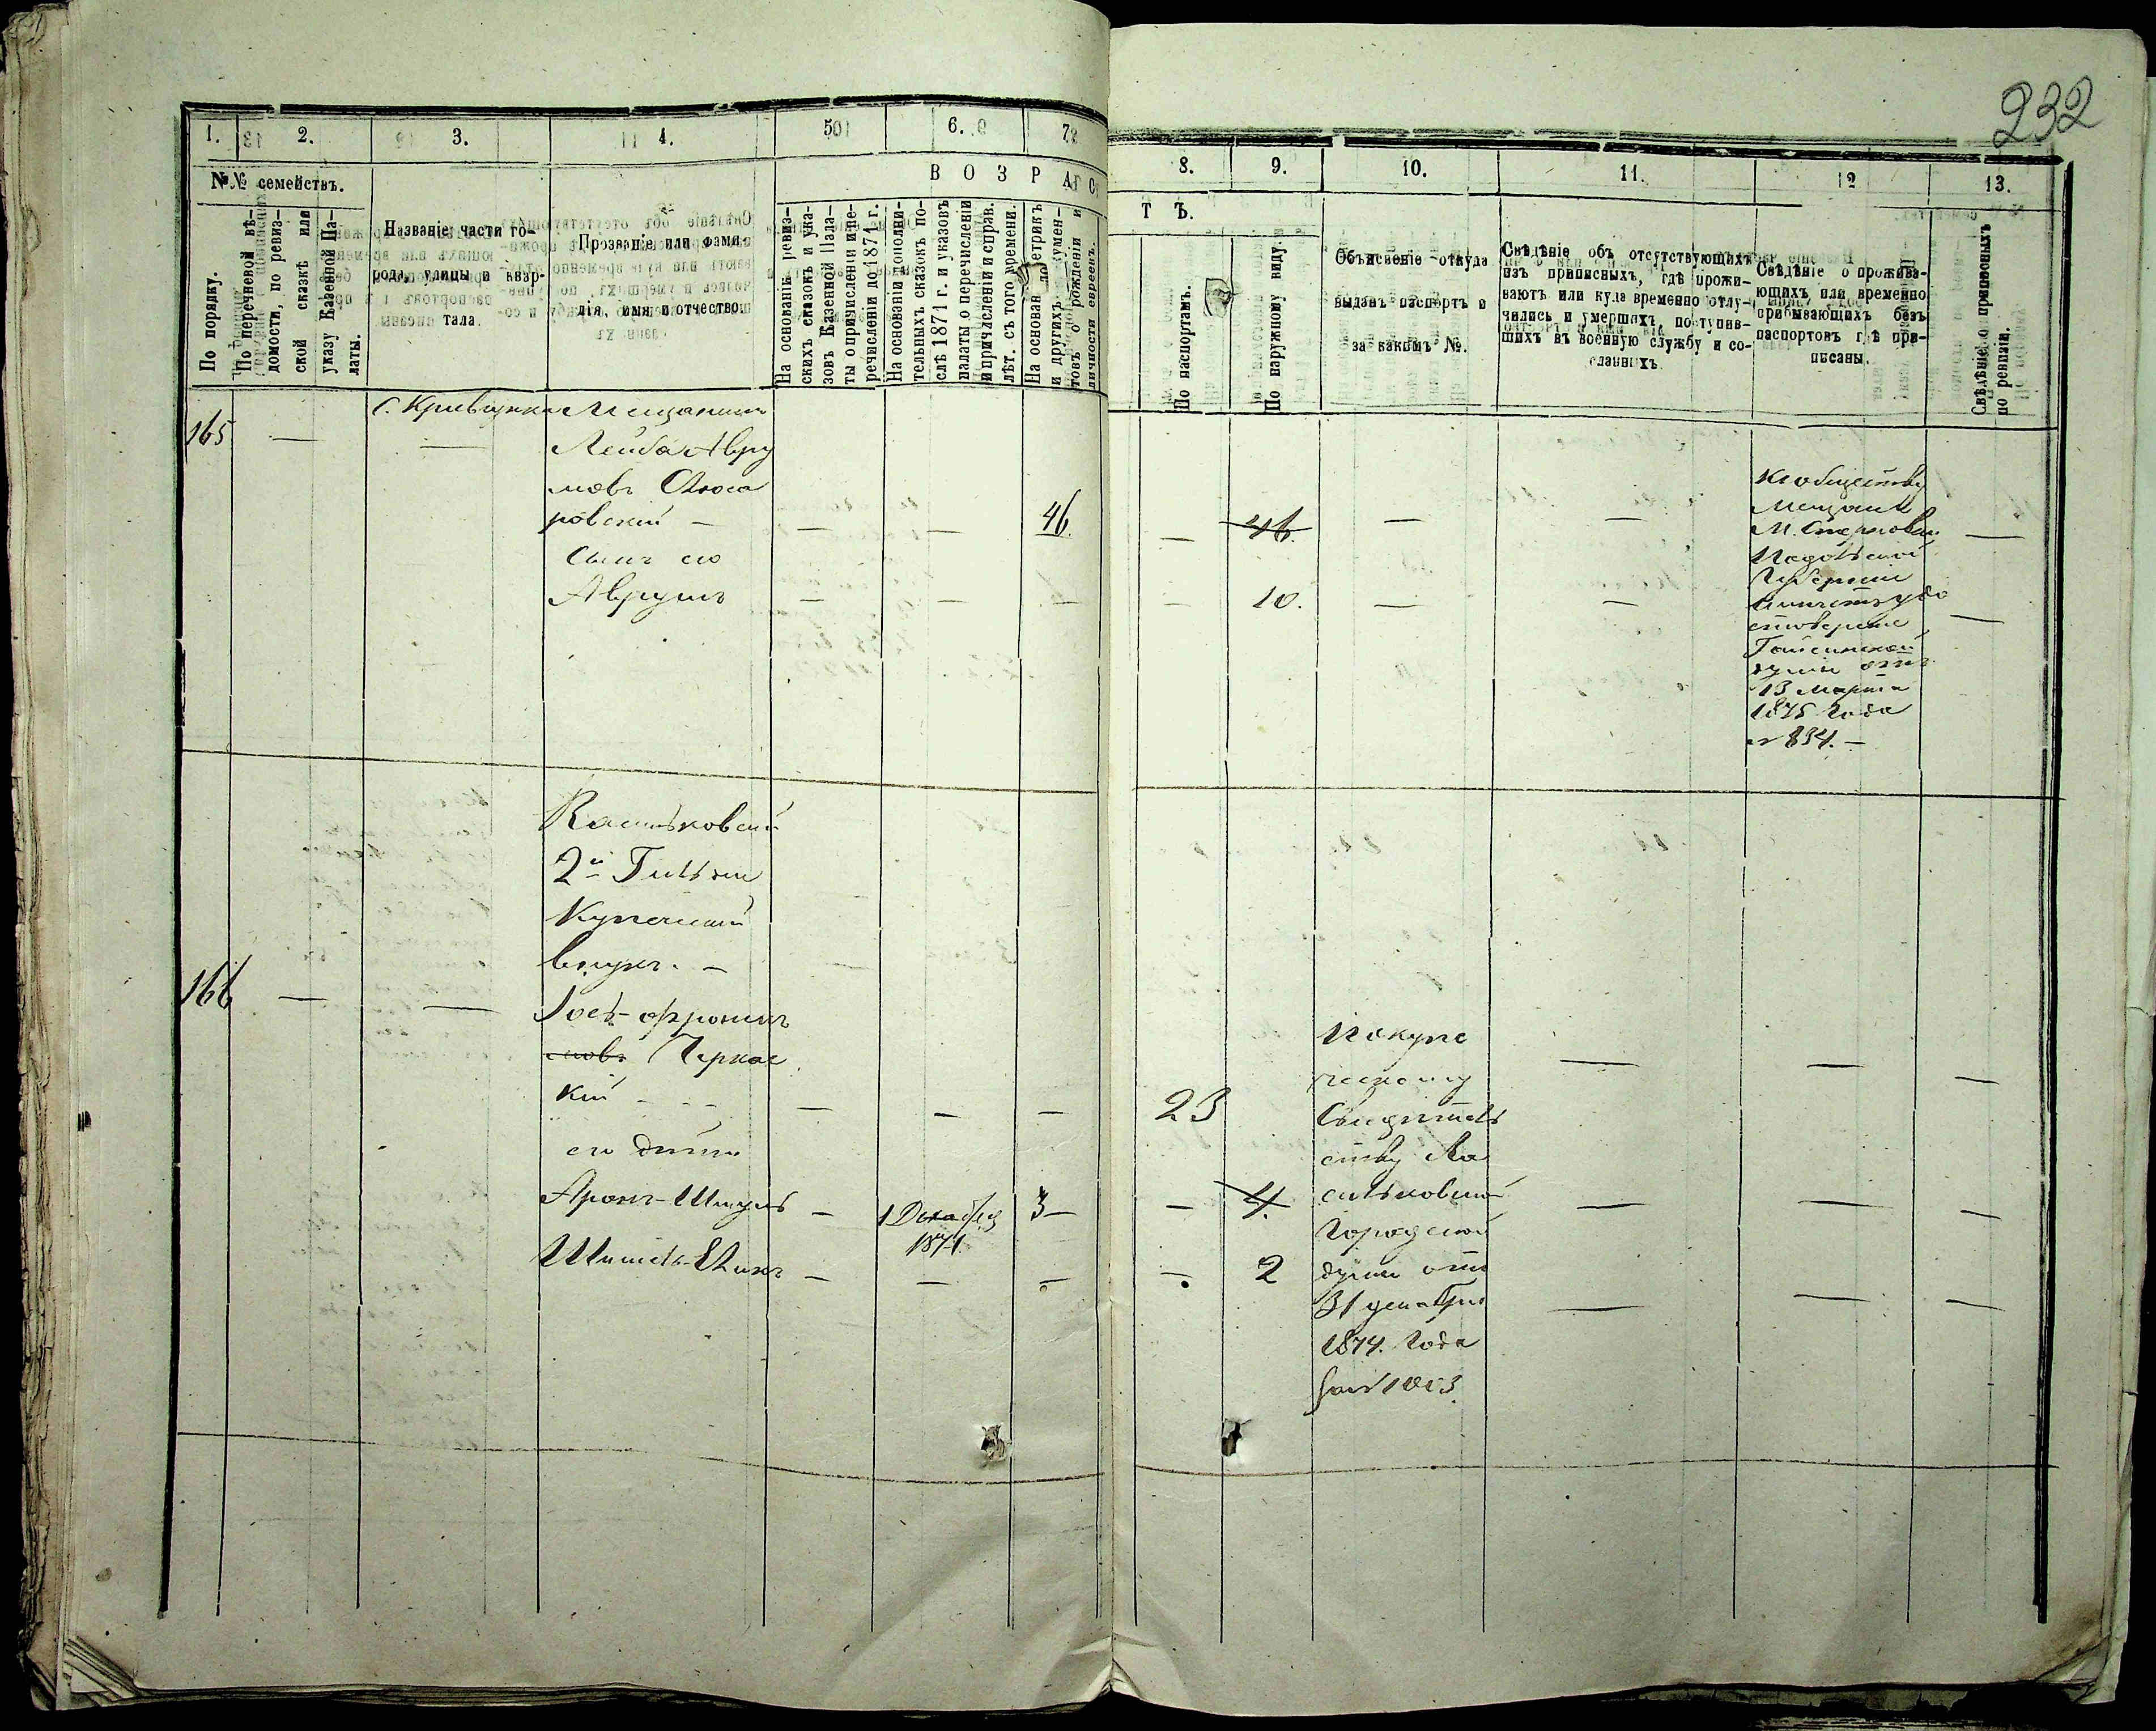 232
1. 2. 3. 4. 5 6. 7
8. 9. 10. 11. 12 13.
№№ семействъ.
По порядку.
По перечневой вѣ-
домости, по ревиз-
ской сказкѣ или
указу Казенной Па-
латы.
Названіе части го-
рода, улицы и квар-
тала.
Прозваніе или фами-
лія, имя и отчество.
В О З Р А С
Т Ъ.
На основаніи ревиз-
скихъ сказокъ и ука-
зовъ Казенной Пала-
ты о причисленіи и пе-
речисленіи до 1871 г.
На основаніи дополни-
тельныхъ сказокъ по-
слѣ 1871 г. и указовъ
палаты о перечисленіи
и причисленіи и справ.
лѣт. съ того времени.
На основан по метрикъ
и другихъ докумен-
товъ о рожденіи и
личности евреевъ.
По паспортамъ.
По наружному виду.
Объясненіе откуда
выданъ паспортъ и
за какимъ №.
Свѣдѣніе объ отсутствующихъ
изъ приписныхъ, гдѣ прожи-
ваютъ или куда временно отлу-
чились и умершихъ, поступив-
шихъ въ военную службу и со-
сланныхъ.
Свѣдѣніе о прожива-
ющихъ или временно
прибывающихъ безъ
паспортовъ гдѣ при-
писаны.
Свѣдѣніе о приписныхъ
по ревизіи.
165 — С. Кривцунка —
Мещанинъ
Лейба Авру
мовъ
ровский — — — 46. — 46. — — —
Сынъ его
Аврумъ — — — — 10. — — —
К обществу
Мещанъ
М.
Подольской
Губерніи
стовѣрене
Гайсинской
думы отъ
13 Марта
1875 Года
№ 834. —
Васильковскій
2й Гильдіи
Купеческій
внукъ. —
166 — —
Іось-Фроимъ
мовъ Черкас
кій — — — 23 — — —
его дѣти
Аронъ-Шмуль — 1 Декабря 1871 3 — — 4. — — —
— — — — 2 — — —
По купе
ческому
Свидѣтель
ству Ва
сильковской
Городской
думы отъ
31 декабря
1874. Года